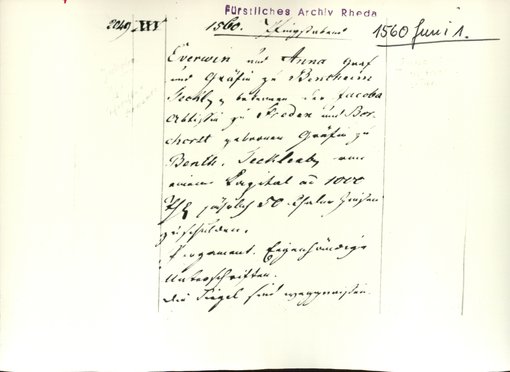 Fürstliches Archiv Rheda
2049 III 1560. Pfingstabend 1560 Juni 1.
Everwin und Anna Graf
und Gräfin zu Bentheim
Teckl. bekennen der Jacoba
Abtissin zu Freden und Bor-
chorst gebornen Gräfin zu
Benth. Tecklenb. von
einem Capital ad 1000
jährlich 50 Thaler Zinsen
zu schulden.
Pergament. Eigenhändige
Unterschriften.
Die Siegel sind weggerissen.